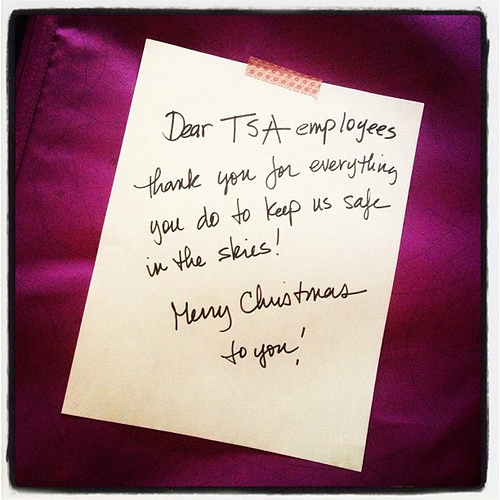 Dear TSA employees
thank you for everything
you do to keep us safe
in the skies!
Merry Christmas
to you!